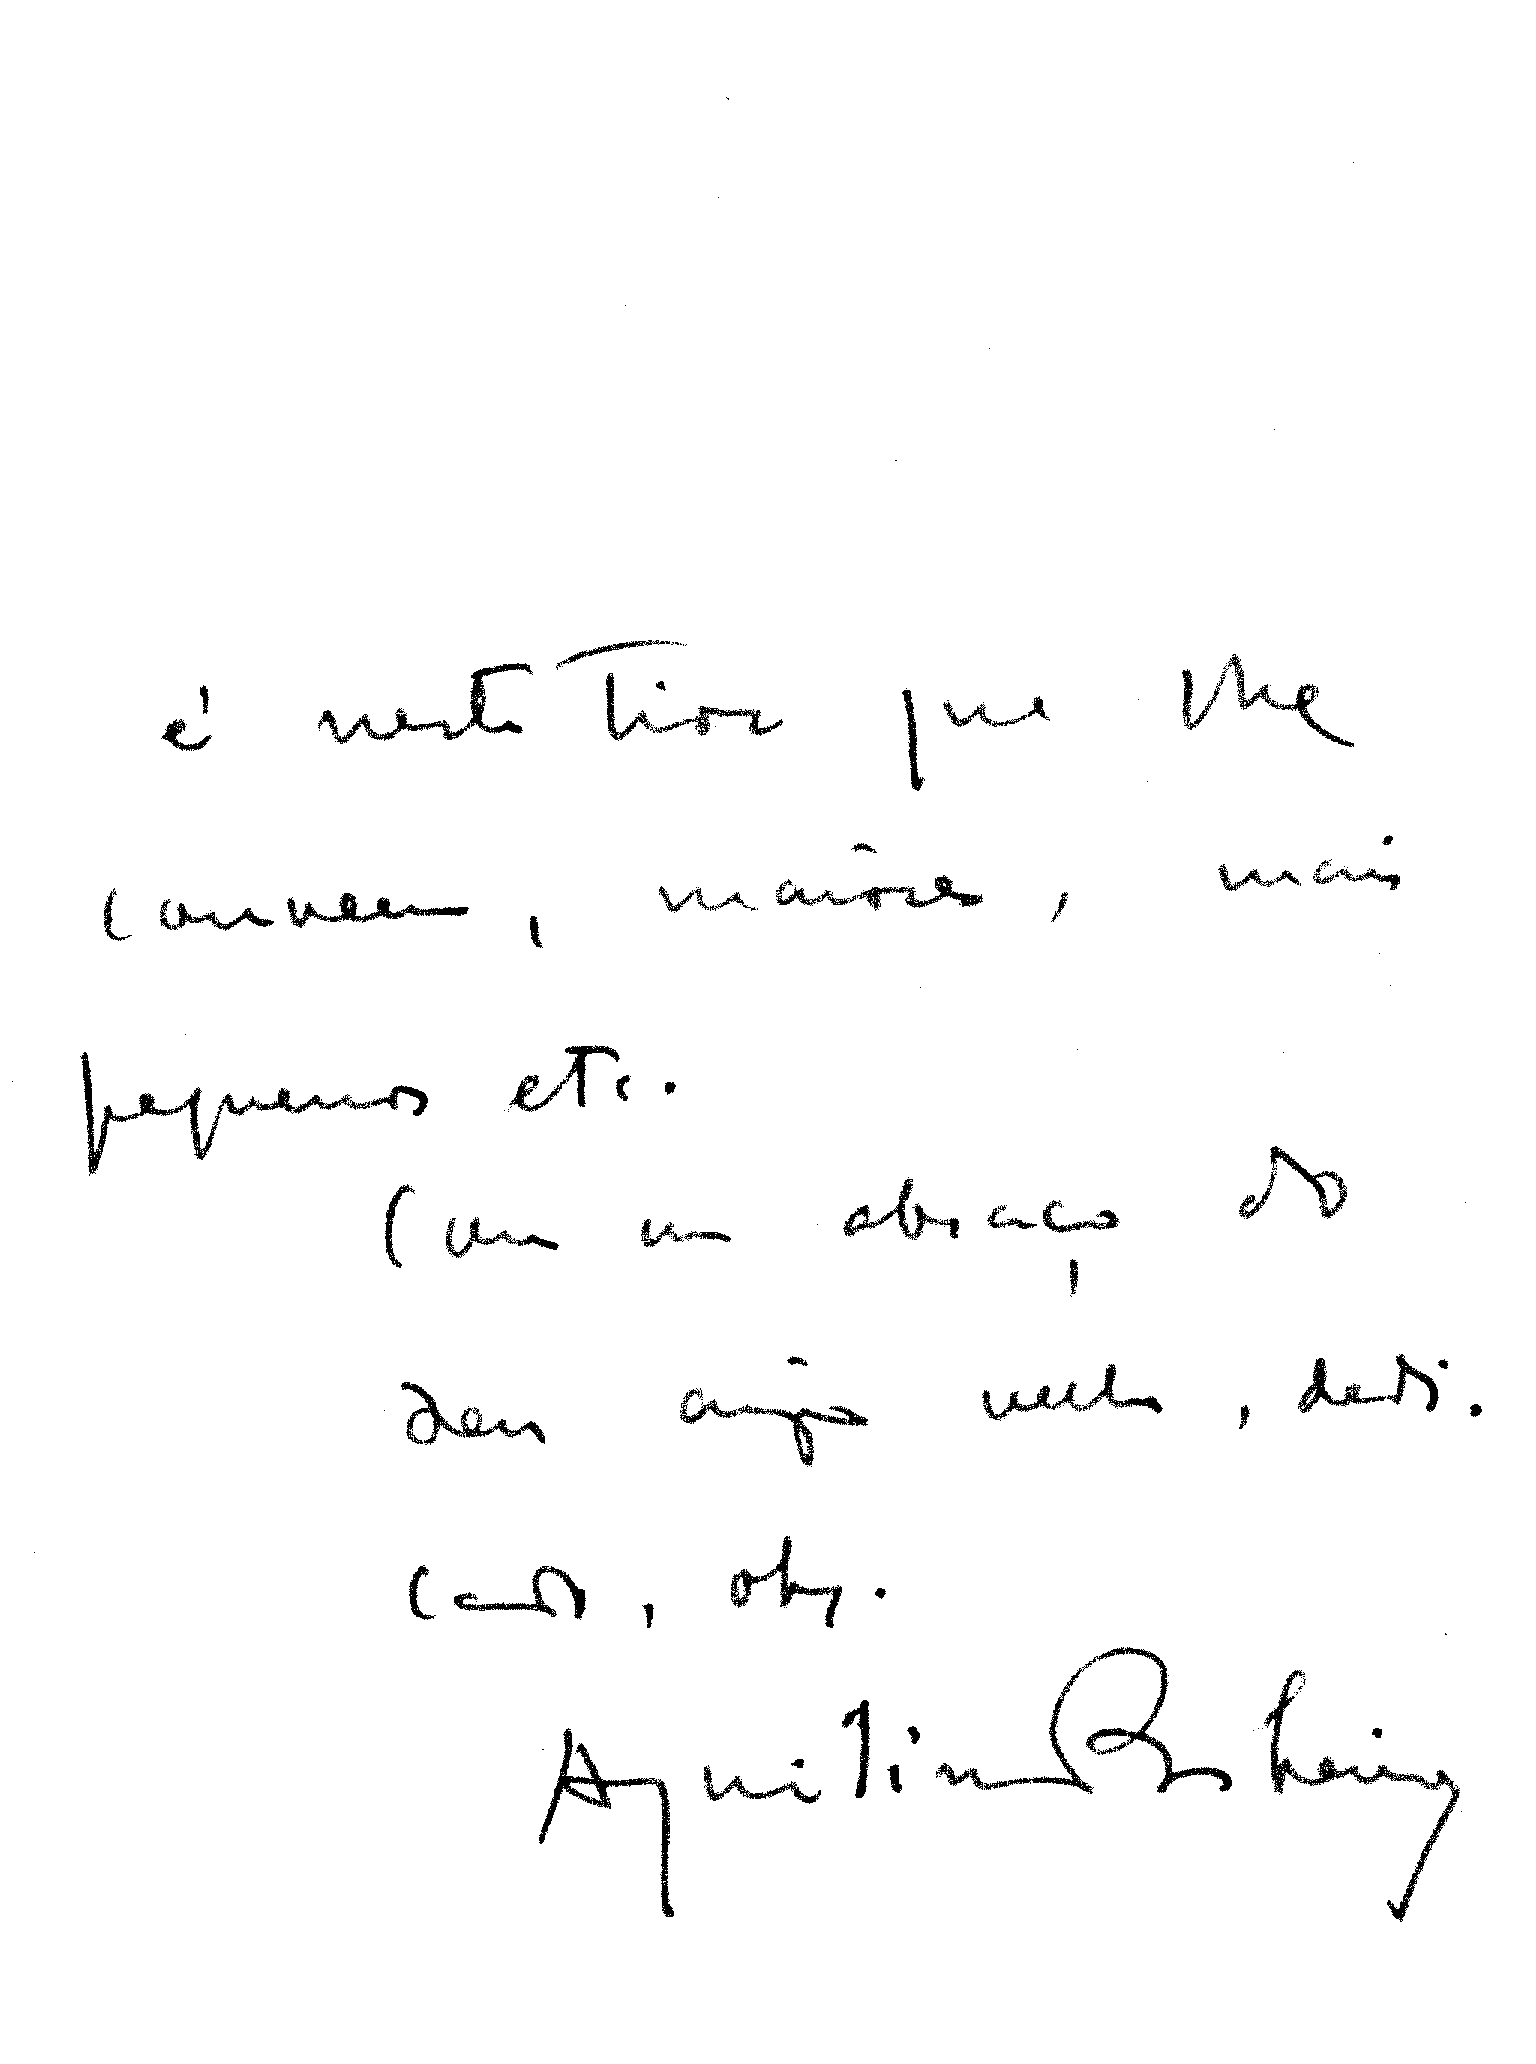 é neste tipo que lhe
conveem, maiôres, mais
pequenos etc.
Com um abraço do
seu amigo velho, dedi.
cado, obg.
Aquilino Ribeiro